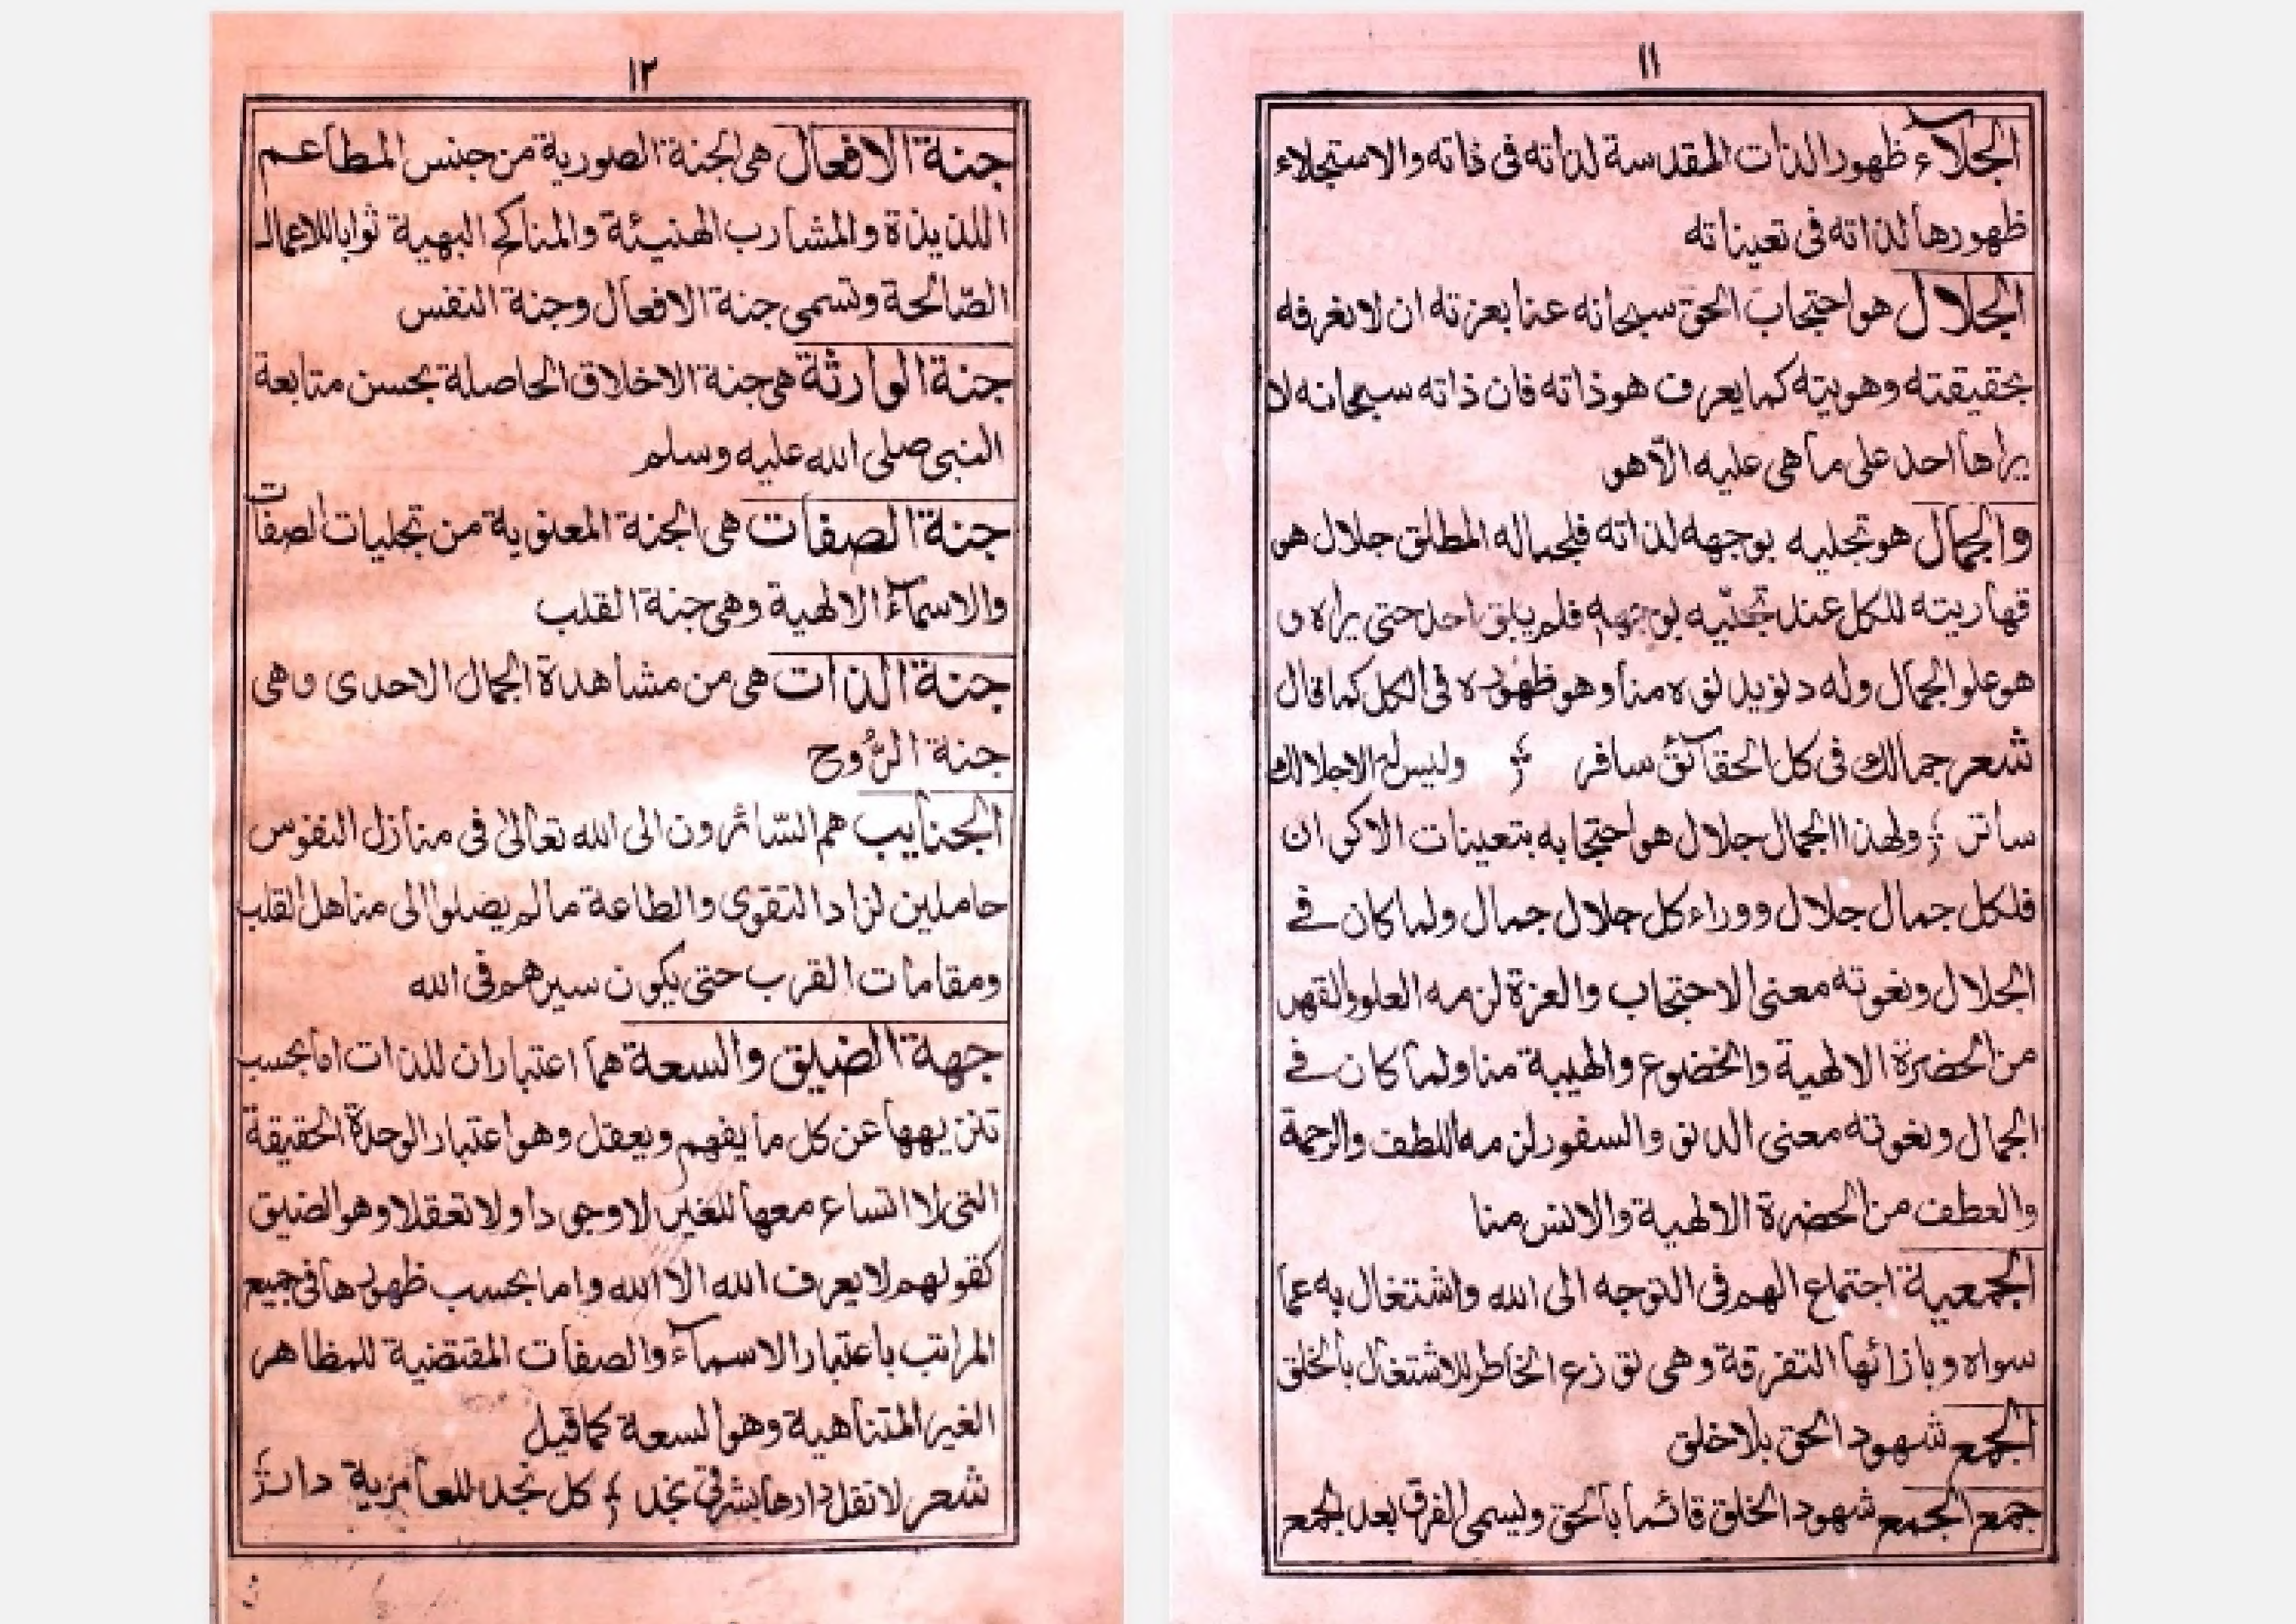 ١١
الجلاء ظهور الذات المقدسة لذاته فى ذاته والاستجلاء
ظهورها لذاته فى تعيناته
الجلال هو احتجاب الحق سبحانه عنا بعزته ان لا نعرفه
بحقيقته وهويته كما يعرف هو ذاته فان ذاته سبحانه لا
يراها احد على ما هى عليه الّا هو
والجمال هو تجليه بوجهه لذاته فلجماله المطلق جلال هو
قهاريته للكل عند تجليه بوجهه فلم يبق احد حتى يراه و
هو علو الجمال وله دنو يدنو به منا وهو ظهوره فى الكل كما قال
شعر جمالك فى كل الحقائق سافر وليس له الا جلالك
ساتر ولهذا الجمال جلال هو احتجابه بتعينات الاكوان
فلكل جمال جلال ووراء كل جلال جمال ولما كان فے
الجلال ونعوته معنى الاحتجاب والعزة لزمه العلو والقهر
من الحضرة الالهية والخضوع والهيبة منا ولما كان فے
الجمال ونعوته معنى الدنو والسفور لزمه اللطف والرحمة
والعطف من الحضرة الالهية والانس منا
الجمعية اجتماع الهم فى التوجه الى الله واشتغال به عما
سواه وبازائها التفرقة وهى توزع الخاطر للاشتغال بالخلق
الجمع شهود الحق بلا خلق
جمع الجمع شهود الخلق قائما بالحق ويسمى الفرق بعد الجمع
١٢
جنة الافعال هى الجنة الصورية من جنس المطاعم
اللذيذة والمشارب الهنيئة والمناكح البهية ثوابا للاعمال
الصّالحة وتسمى جنة الافعال وجنة النفس
جنة الوارثة هى جنة الاخلاق الحاصلة بحسن متابعة
النبى صلى الله عليه وسلم
جنة الصفات هى الجنة المعنوية من تجليات الصفات
والاسماء الالهية وهى جنة القلب
جنة الذات هى من مشاهدة الجمال الاحدى وهى
جنة الرُّوح
الجنايب هم السّائرون الى الله تعالى فى منازل النفوس
حاملين لزاد التقوى والطاعة ما لم يصلوا الى مناهل القلب
ومقامات القرب حتى يكون سيرهم فى الله
جهة الضيق والسعة هما اعتباران للذات اما بحسب
تنزيهها عن كل ما يفهم ويعقل وهو اعتبار الوحدة الحقيقة
التى لا اتساع معها للغير لا وجودا ولا تعقلا وهو الضيق
كقولهم لا يعرف الله الا الله واما بحسب ظهورها فى جميع
المراتب باعتبار الاسماء والصفات المقتضية للمظاهر
الغير المتناهية وهو السعة كما قيل
شعر لا تقل دارها بشرقى نجد كل نجد للعامرية دار